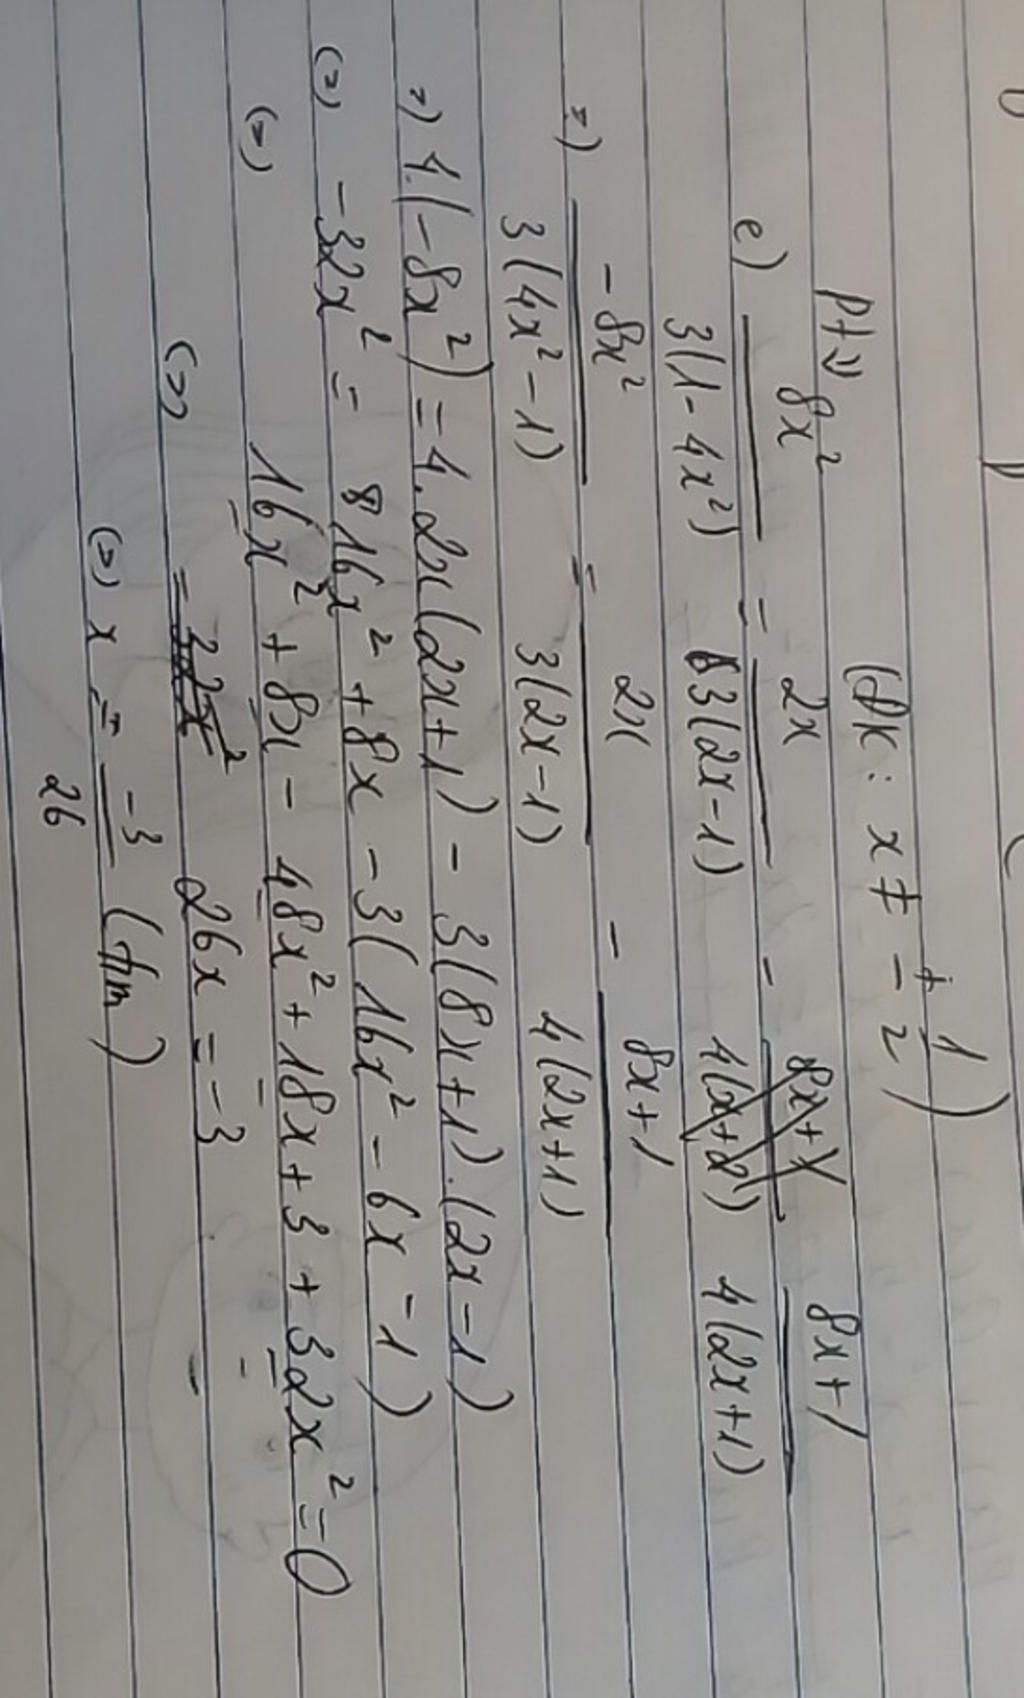 (ĐK: x ≠ ± 1/2)
ptđ
e) 8x²/3(1-4x²) = 2x/3(2x-1) - 8x+1/4(x+2) 8x+1/4(2x+1)
=) -8x²/3(4x²-1) = 2x/3(2x-1) - 8x+1/4(2x+1)
=) 4.(-8x²) = 4.2x(2x+1) - 3(8x+1).(2x-1)
(=) -32x² = 16x² + 8x - 3(16x² - 6x - 1)
(=) 16x² + 8x - 48x² + 18x + 3 + 32x² = 0
(=) 32x² 26x = -3
(=) x = -3/26 (tm)